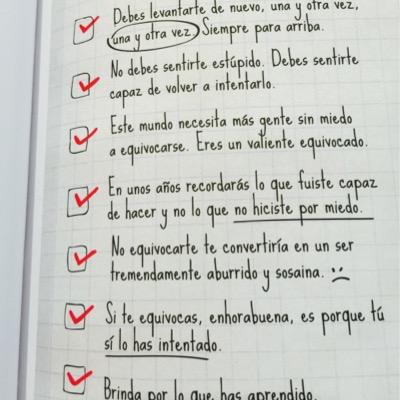 Debes levantarte de nuevo, una y otra vez,
una y otra vez. Siempre para arriba.
No debes sentirte estúpido. Debes sentirte
capaz de volver a intentarlo.
Este mundo necesita más gente sin miedo
a equivocarse. Eres un valiente equivocado.
En unos años recordarás lo que fuiste capaz
de hacer y no lo que no hiciste por miedo.
No equivocarte te convertiría en un ser
tremendamente aburrido y sosaina.
Si te equivocas, enhorabuena, es porque tú
sí lo has intentado.
Brinda por lo que has aprendido.